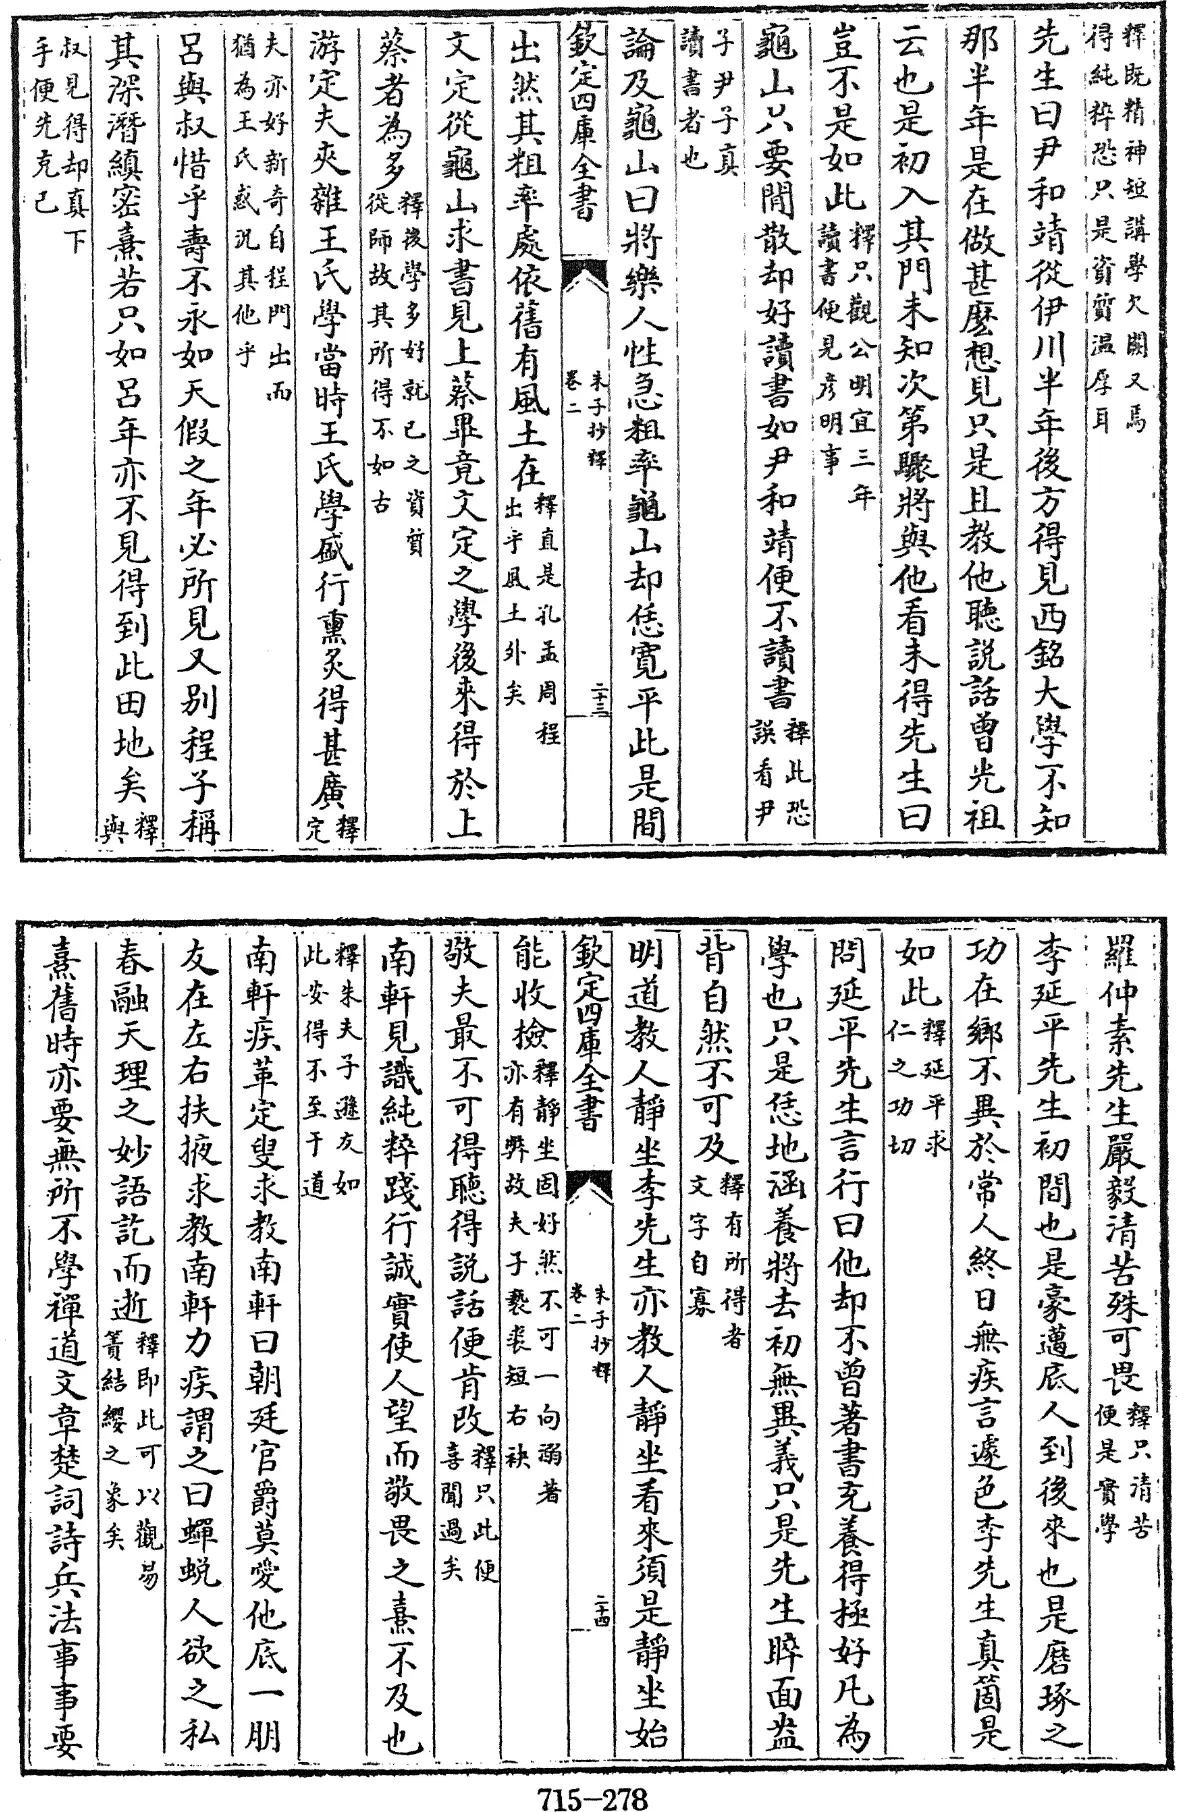 釋既精神短講學欠闕又焉
得純粹恐只是資質温厚耳
先生曰尹和靖從伊川半年後方得見西銘大學不知
那半年是在做甚麽想見只是且教他聽説話曾光祖
云也是初入其門未知次第驟將與他看未得先生曰
豈不是如此釋只觀公明宜三年
讀書便見彦明事
龜山只要閒散却好讀書如尹和靖便不讀書釋此恐
誤看尹
子尹子真
讀書者也
論及龜山曰將樂人性急粗率龜山却恁寛平此是間
欽定四庫全書
朱子抄釋
卷二
二十三
出然其粗率處依舊有風土在釋直是孔孟周程
出乎風土外矣
文定從龜山求書見上蔡畢竟文定之學後來得於上
蔡者為多釋後學多好就己之資質
從師故其所得不如古
游定夫夾雜王氏學當時王氏學盛行熏炙得甚廣釋
定
夫亦好新奇自程門出而
猶為王氏惑況其他乎
呂與叔惜乎壽不永如天假之年必所見又别程子稱
其深潛縝密熹若只如呂年亦不見得到此田地矣釋
與
叔見得却真下
手便先克己
羅仲素先生嚴毅清苦殊可畏釋只清苦
便是實學
李延平先生初間也是豪邁底人到後來也是磨琢之
功在鄉不異於常人終日無疾言遽色李先生真箇是
如此釋延平求
仁之功切
問延平先生言行曰他却不曾著書充養得極好凡為
學也只是恁地涵養將去初無異義只是先生睟面盎
背自然不可及釋有所得者
文字自寡
明道教人靜坐李先生亦教人靜坐看來須是靜坐始
欽定四庫全書
朱子抄釋
卷二
二十四
能收檢釋靜坐固好然不可一向溺著
亦有弊故夫子褻裘短右袂
敬夫最不可得聽得説話便肯改釋只此便
喜聞過矣
南軒見識純粹踐行誠實使人望而敬畏之熹不及也
釋朱夫子遜友如
此安得不至于道
南軒疾革定叟求教南軒曰朝廷官爵莫愛他底一朋
友在左右扶掖求教南軒力疾謂之曰蟬蜕人欲之私
春融天理之妙語訖而逝釋即此可以觀易
簀結纓之象矣
熹舊時亦要無所不學禪道文章楚詞詩兵法事事要
715-278